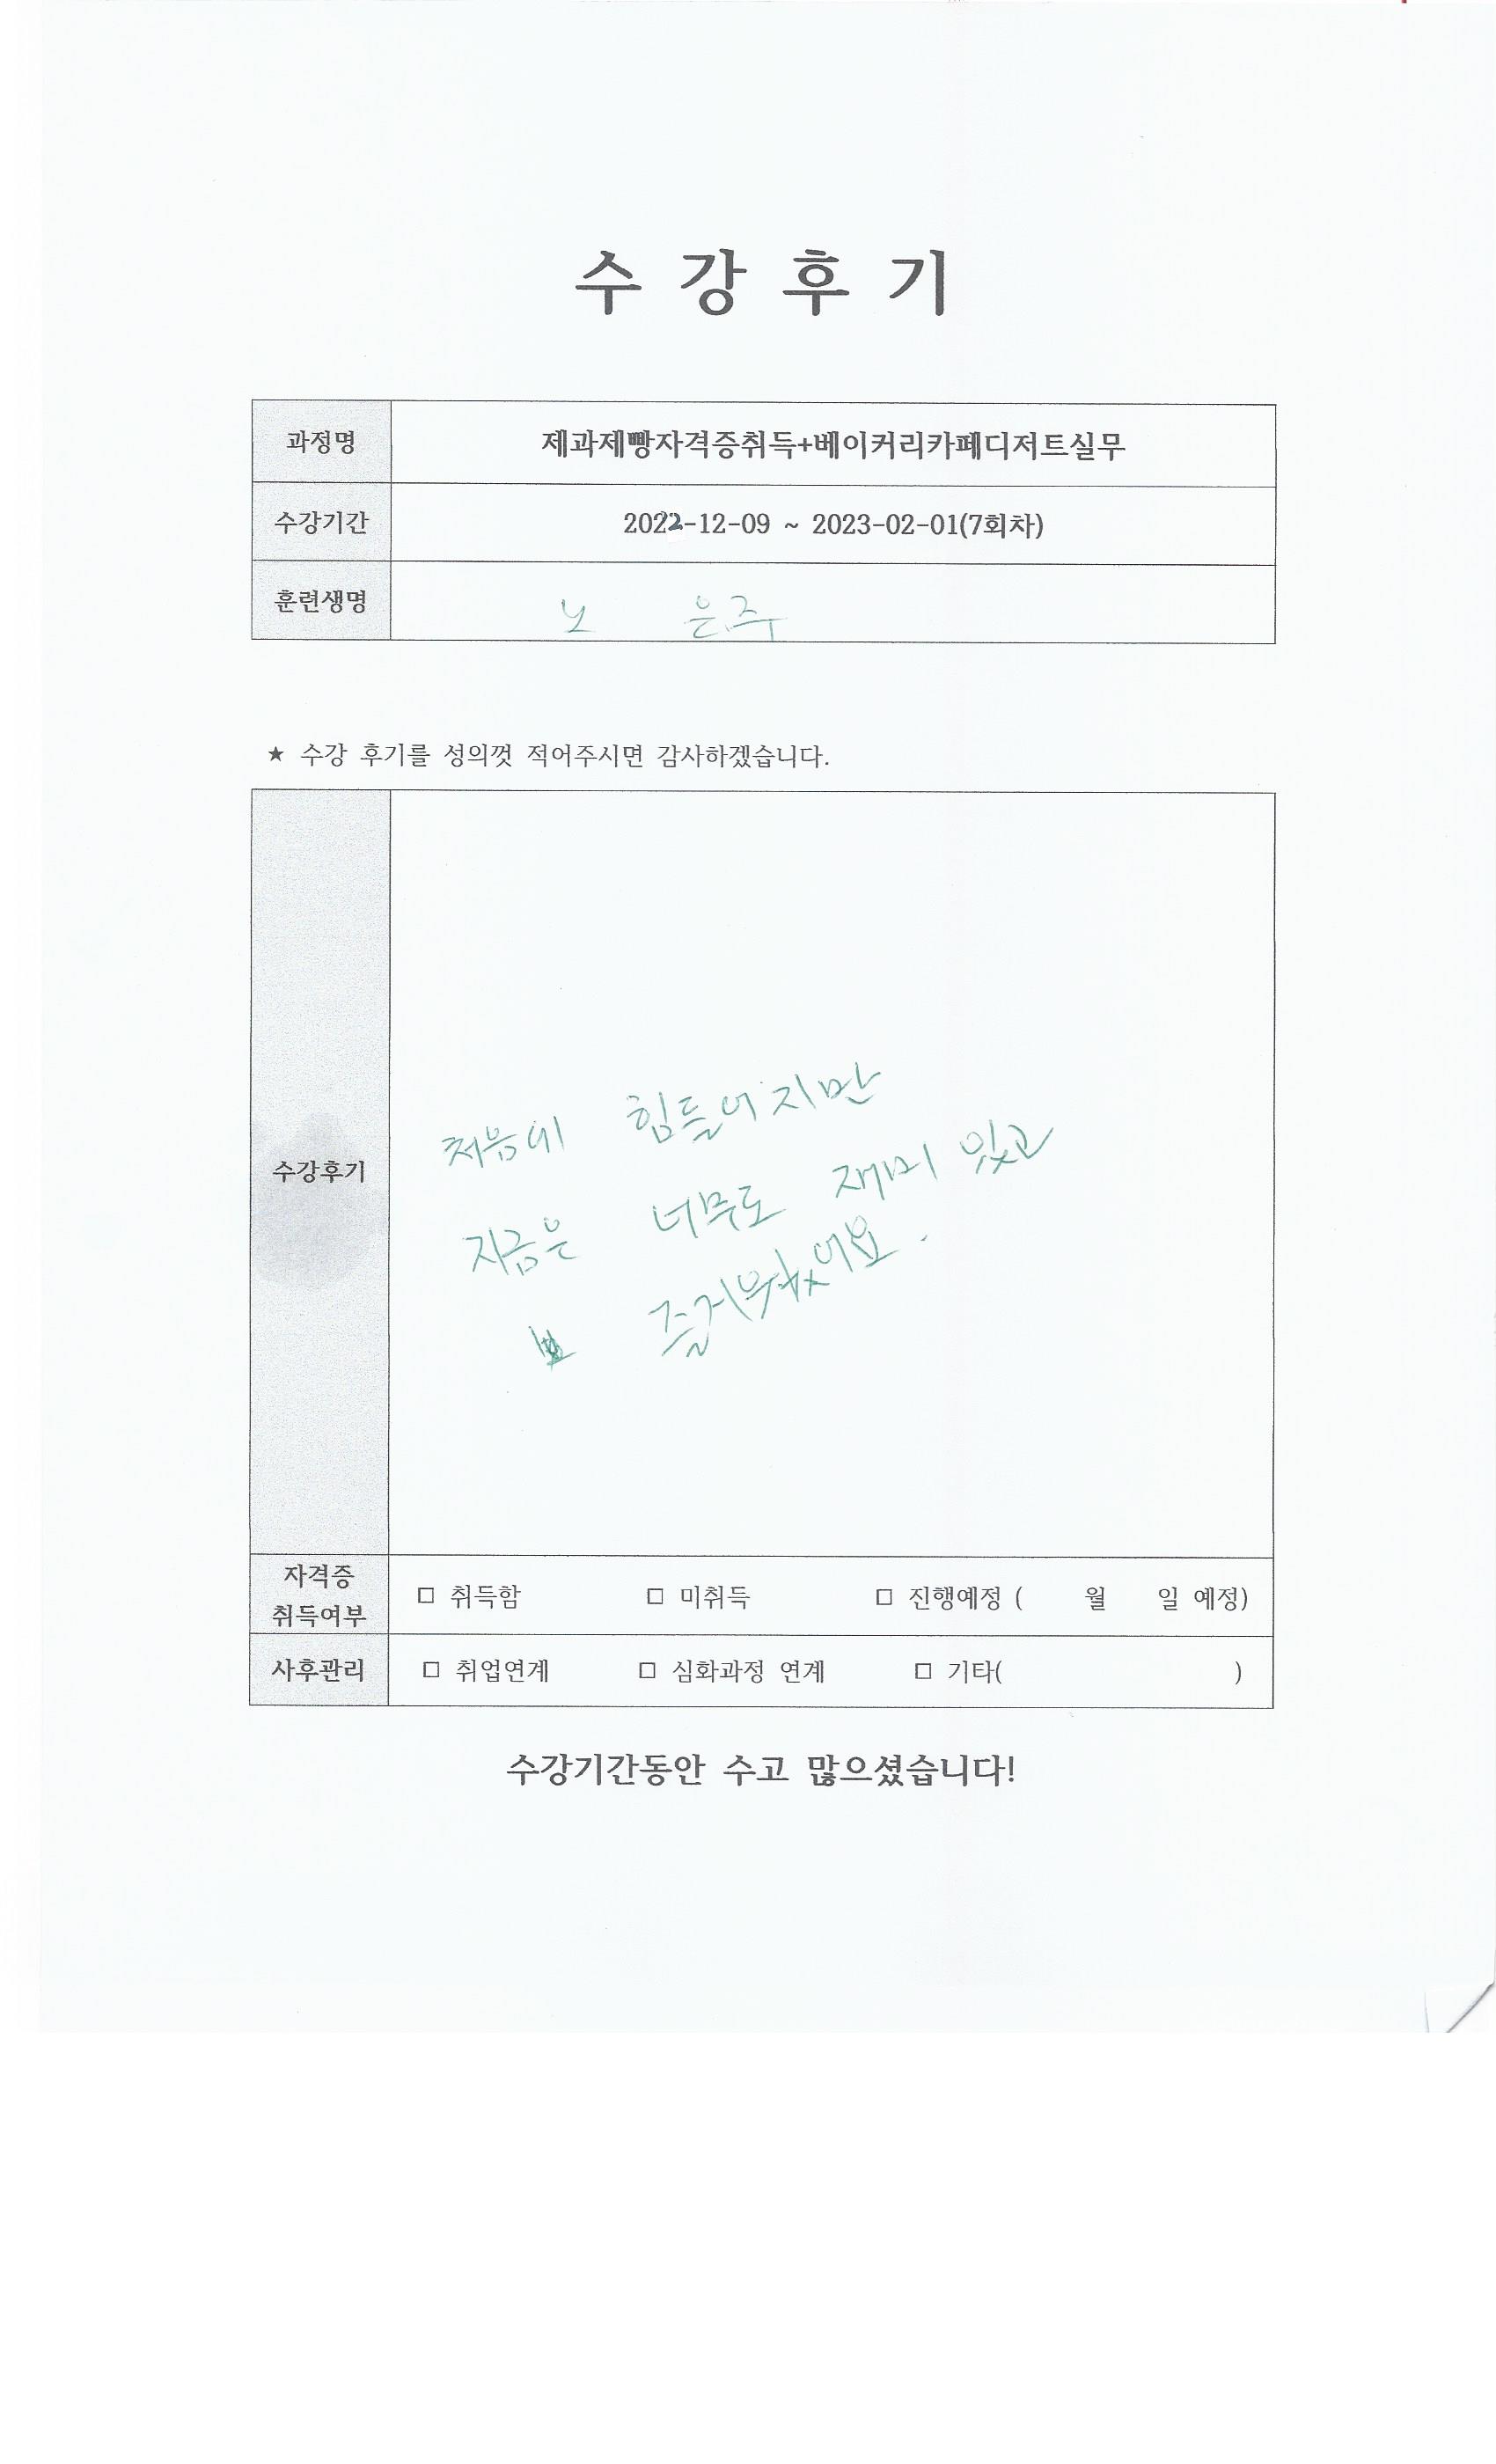 수 강 후 기
과정명 제과제빵자격증취득+베이커리카페디저트실무
수강기간 2022-12-09 ~ 2023-02-01(7회차)
훈련생명 노 은주
★ 수강 후기를 성의껏 적어주시면 감사하겠습니다.
수강후기
처음에 힘들어지만
지금은 너무도 재미 있고
즐거웠어요.
자격증
취득여부
□ 취득함 □ 미취득 □ 진행예정 ( 월 일 예정)
사후관리 □ 취업연계 □ 심화과정 연계 □ 기타( )
수강기간동안 수고 많으셨습니다!